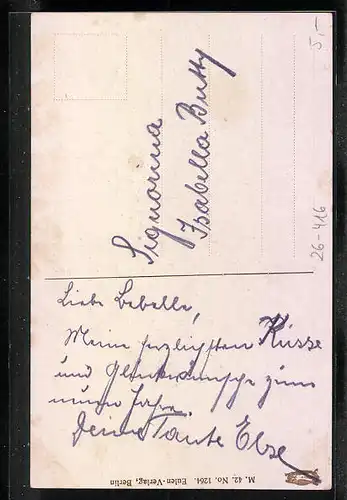 Signorina
Isabella Butty
Liebe Bebelle,
Meine herzlichsten Küsse
und Glückwünsche zum
neuen Jahre.
Deine Tante Else
M. 42. No. 1264. Eulen-Verlag, Berlin
5,-
26-416